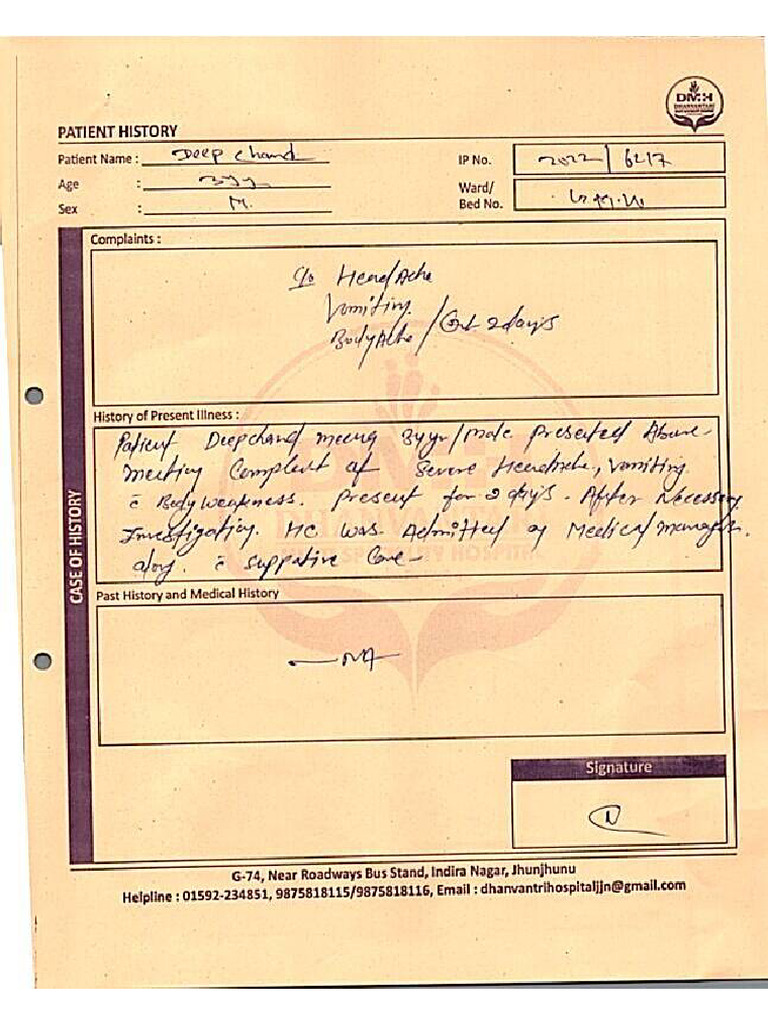 DMH
DHANVANTARI
PATIENT HISTORY
Patient Name : Deep Chand
IP No. 2022/6217
Age :
Ward/
Sex : M.
Bed No.
Complaints :
c/o HeadAche
Vomiting
BodyAche / 2 days
CASE OF HISTORY
History of Present Illness :
Patient Deepchand meena 34yr/Male Presented Above-
Meeting Complent of Severe Headache, Vomiting
c̄ Body weakness. Present for 2 days. After Necessary
Investigation. He was Admitted Medical manag
along. c̄ Suppative Care-
Past History and Medical History
— NA
Signature
G-74, Near Roadways Bus Stand, Indira Nagar, Jhunjhunu
Helpline : 01592-234851, 9875818115/9875818116, Email : dhanvantrihospitaljjn@gmail.com